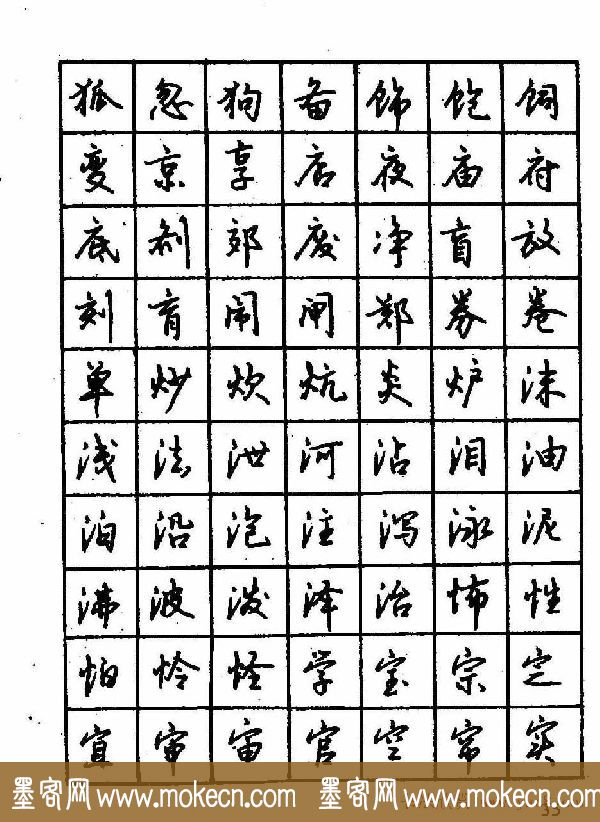 狐 忽 狗 备 饰 饱 饲
变 京 享 店 夜 庙 府
底 剂 郊 废 净 盲 放
刻 育 闹 闸 郑 券 卷
单 炒 炊 炕 炎 炉 沫
浅 法 泄 河 沾 泪 油
泊 沿 泡 注 泻 泳 泥
沸 波 泼 泽 治 怖 性
怕 怜 怪 学 宝 宗 定
宜 审 宙 官 空 帘 实
墨客网 www.mokecn.com 墨客网 www.mokecn.com
33